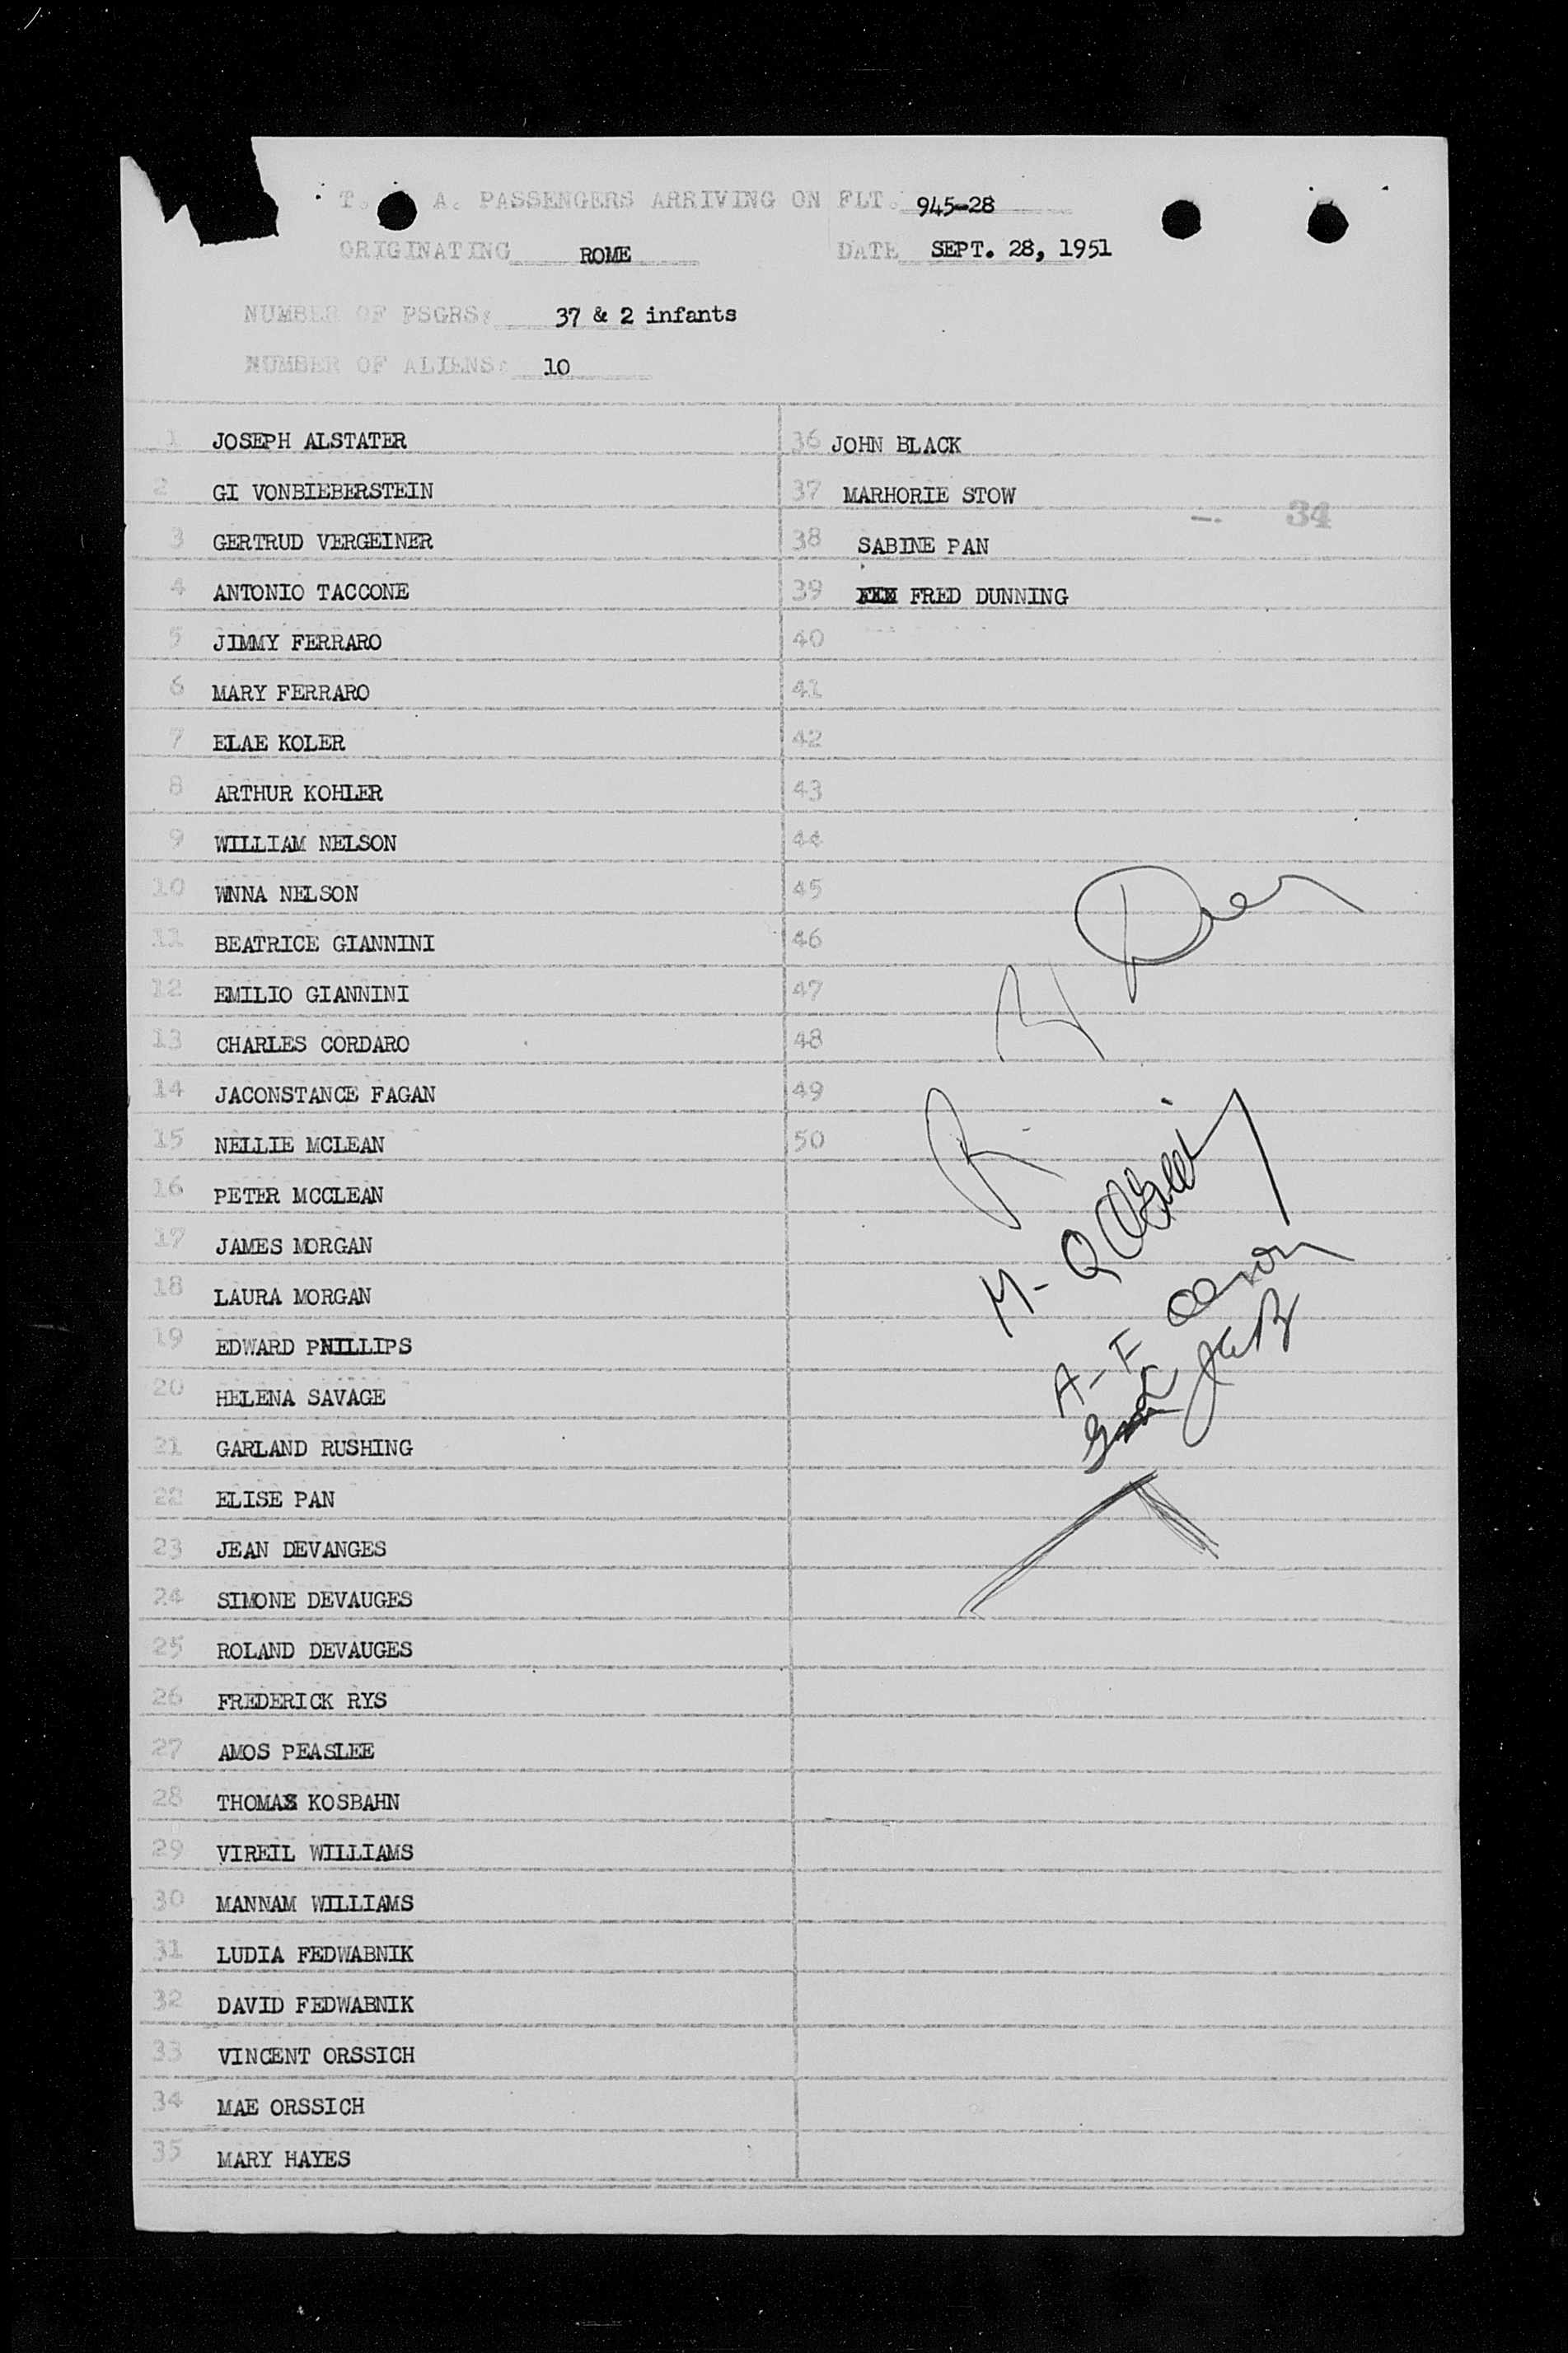 T. A. PASSENGERS ARRIVING ON FLT. 945-28
ORIGINATING ROME DATE SEPT. 28, 1951
NUMBER OF PSGRS: 37 & 2 infants
NUMBER OF ALIENS: 10
1 JOSEPH ALSTATER
2 GI VONBIEBERSTEIN
3 GERTRUD VERGEINER
4 ANTONIO TACCONE
5 JIMMY FERRARO
6 MARY FERRARO
7 ELAE KOLER
8 ARTHUR KOHLER
9 WILLIAM NELSON
10 WNNA NELSON
11 BEATRICE GIANNINI
12 EMILIO GIANNINI
13 CHARLES CORDARO
14 JACONSTANCE FAGAN
15 NELLIE MCLEAN
16 PETER MCCLEAN
17 JAMES MORGAN
18 LAURA MORGAN
19 EDWARD PHILLIPS
20 HELENA SAVAGE
21 GARLAND RUSHING
22 ELISE PAN
23 JEAN DEVANGES
24 SIMONE DEVAUGES
25 ROLAND DEVAUGES
26 FREDERICK RYS
27 AMOS PEASLEE
28 THOMAS KOSBAHN
29 VIREIL WILLIAMS
30 MANNAM WILLIAMS
31 LUDIA FEDWABNIK
32 DAVID FEDWABNIK
33 VINCENT ORSSICH
34 MAE ORSSICH
35 MARY HAYES
36 JOHN BLACK
37 MARHORIE STOW
34
38 SABINE PAN
39 FRED DUNNING
40
41
42
43
44
45
46
47
48
49
50
M-Q
A-F